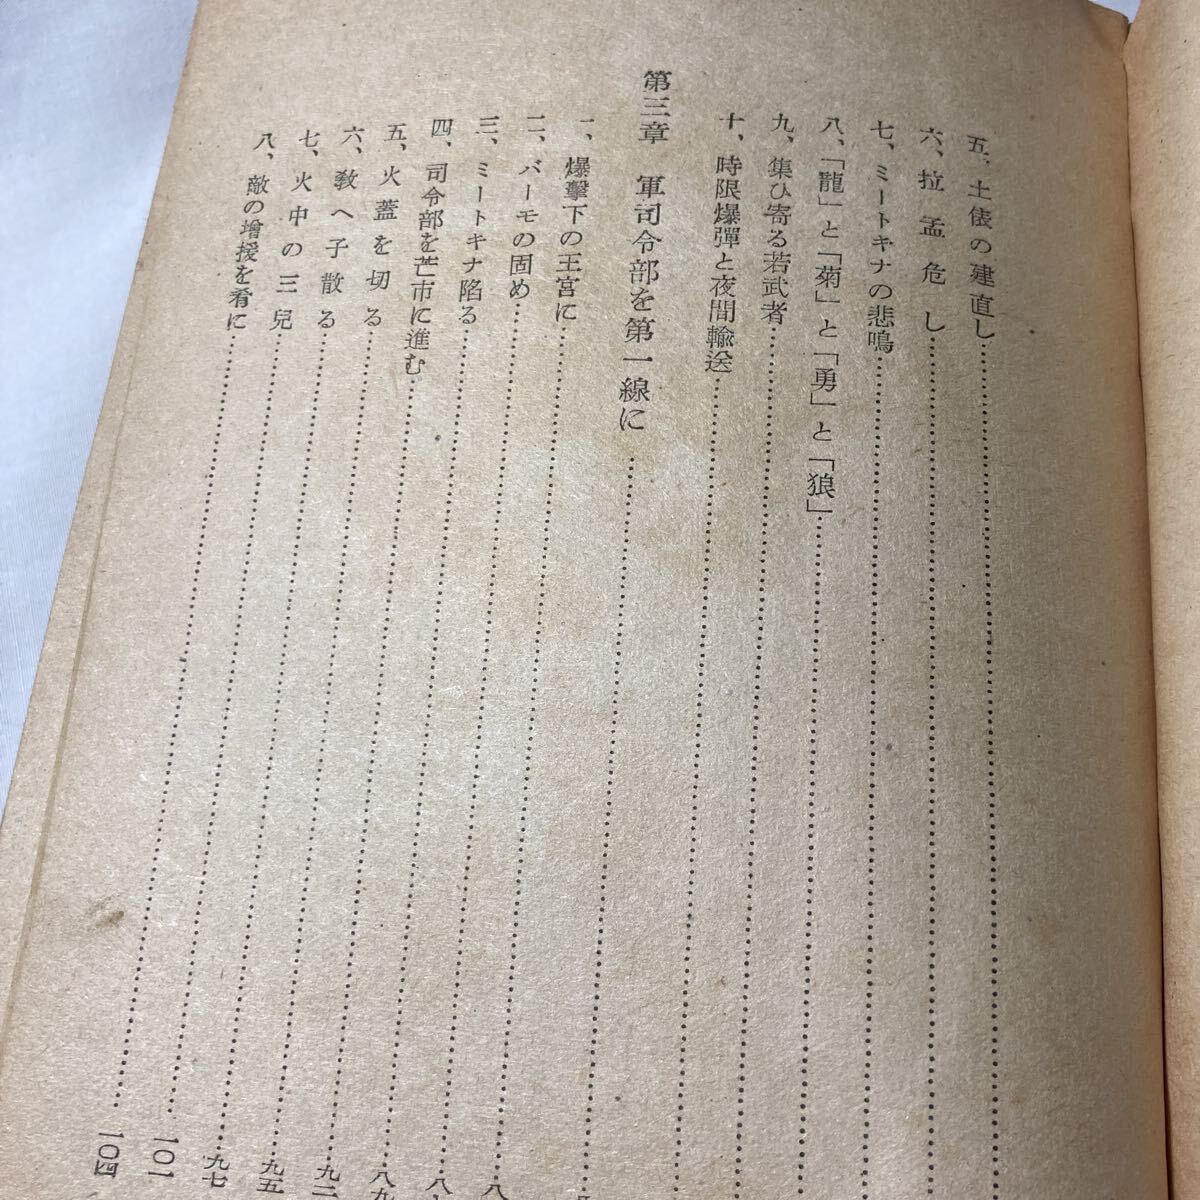 五、土俵の建直し
六、拉孟危し
七、ミートキナの悲鳴
八、「龍」と「菊」と「勇」と「狼」
九、集ひ寄る若武者
十、時限爆彈と夜間輸送
第三章　軍司令部を第一線に
一、爆擊下の王宮に
二、バーモの固め
三、ミートキナ陷る
四、司令部を芒市に進む……八九
五、火蓋を切る……九二
六、敎へ子散る……九五
七、火中の三兒……九七
八、敵の增援を肴に……一〇一
一〇四